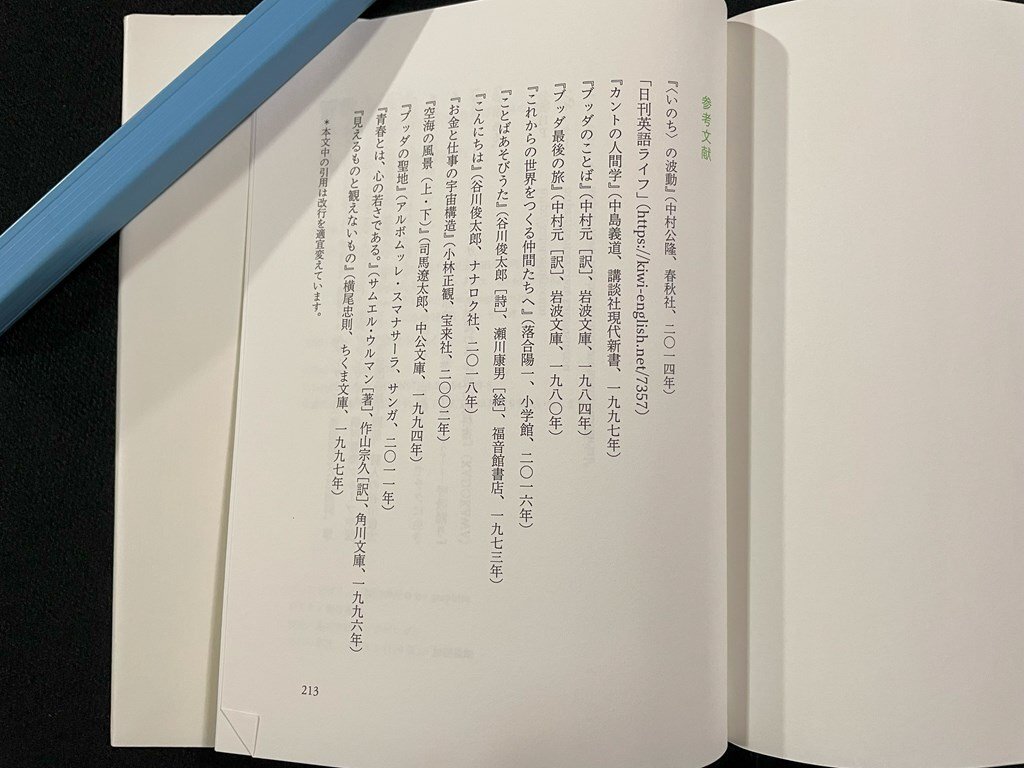 参考文献
『〈いのち〉の波動』(中村公隆、春秋社、二〇一四年)
「日刊英語ライフ」(https://kiwi-english.net/7357)
『カントの人間学』(中島義道、講談社現代新書、一九九七年)
『ブッダのことば』(中村元[訳]、岩波文庫、一九八四年)
『ブッダ最後の旅』(中村元[訳]、岩波文庫、一九八〇年)
『これからの世界をつくる仲間たちへ』(落合陽一、小学館、二〇一六年)
『ことばあそびうた』(谷川俊太郎[詩]、瀬川康男[絵]、福音館書店、一九七三年)
『こんにちは』(谷川俊太郎、ナナロク社、二〇一八年)
『お金と仕事の宇宙構造』(小林正観、宝来社、二〇〇二年)
『空海の風景(上・下)』(司馬遼太郎、中公文庫、一九九四年)
『ブッダの聖地』(アルボムッレ・スマナサーラ、サンガ、二〇一一年)
『青春とは、心の若さである。』(サムエル・ウルマン[著]、作山宗久[訳]、角川文庫、一九九六年)
『見えるものと観えないもの』(横尾忠則、ちくま文庫、一九九七年)
*本文中の引用は改行を適宜変えています。
213